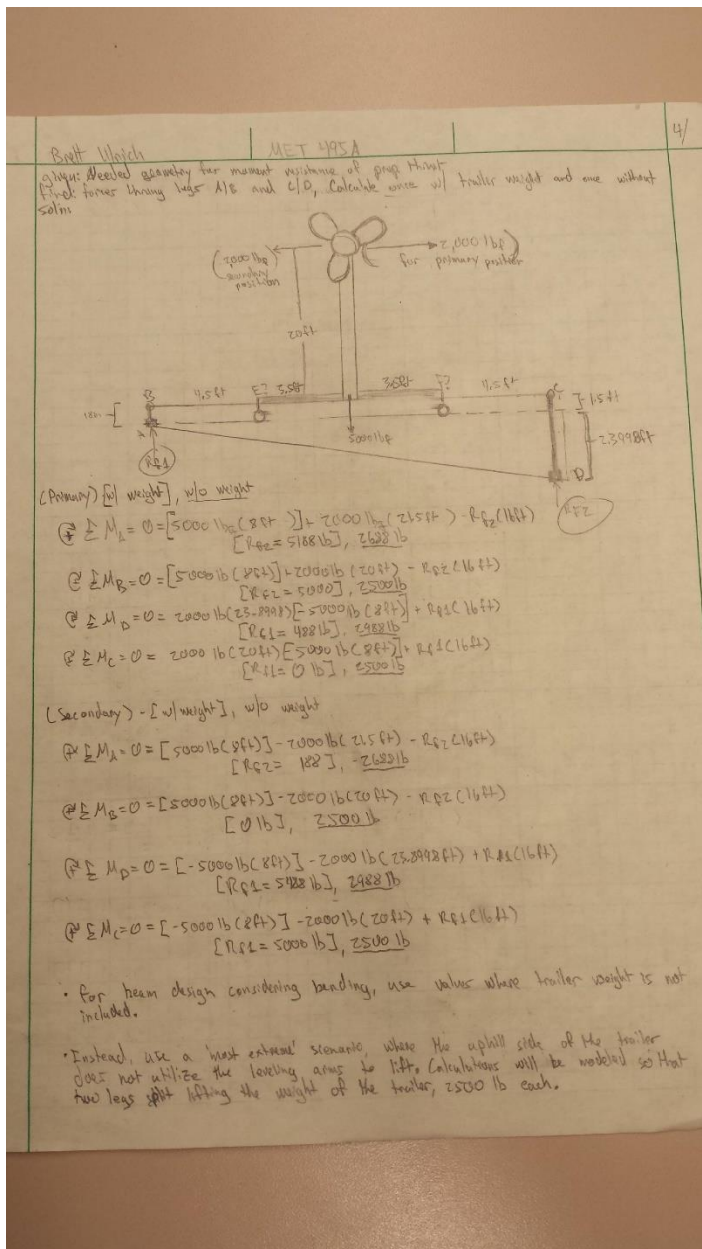 4/
Brett Ulrich MET 495A
given: Needed geometry for moment resistance of prop thrust
find: forces through legs A/B and C/D, Calculate once w/ trailer weight and once without
soln:
(2,000 lbf secondary position)
2,000 lbf
for primary position
20ft
B 4.5ft E? 3.5ft 3.5ft F? 4.5ft C
18in
} 1.5ft
A
5000 lbf
2.3998ft
D
Rf1
Rf2
(Primary) [w/ weight], w/o weight
ΣMA = 0 = [5000 lb(8ft)] + 2000 lb(21.5ft) - Rf2(16ft)
[Rf2 = 5188 lb], 2688 lb
ΣMB = 0 = [5000 lb(8ft)] + 2000 lb(20ft) - Rf2(16ft)
[Rf2 = 5000], 2500 lb
ΣMD = 0 = 2000 lb(23.8998)[-5000 lb(8ft)] + Rf1(16ft)
[Rf1 = 488 lb], 2988 lb
ΣMC = 0 = 2000 lb(20ft)[-5000 lb(8ft)] + Rf1(16ft)
[Rf1 = 0 lb], 2500 lb
(Secondary) - [w/ weight], w/o weight
ΣMA = 0 = [5000 lb(8ft)] - 2000 lb(21.5ft) - Rf2(16ft)
[Rf2 = 188], -2688 lb
ΣMB = 0 = [5000 lb(8ft)] - 2000 lb(20ft) - Rf2(16ft)
[0 lb], 2500 lb
ΣMD = 0 = [-5000 lb(8ft)] - 2000 lb(23.8998ft) + Rf1(16ft)
[Rf1 = 5488 lb], 2988 lb
ΣMC = 0 = [-5000 lb(8ft)] - 2000 lb(20ft) + Rf1(16ft)
[Rf1 = 5000 lb], 2500 lb
• for beam design considering bending, use values where trailer weight is not
included.
• Instead, use a 'most extreme' scenario, where the uphill side of the trailer
does not utilize the leveling arms to lift. Calculations will be modeled so that
two legs split lifting the weight of the trailer, 2500 lb each.